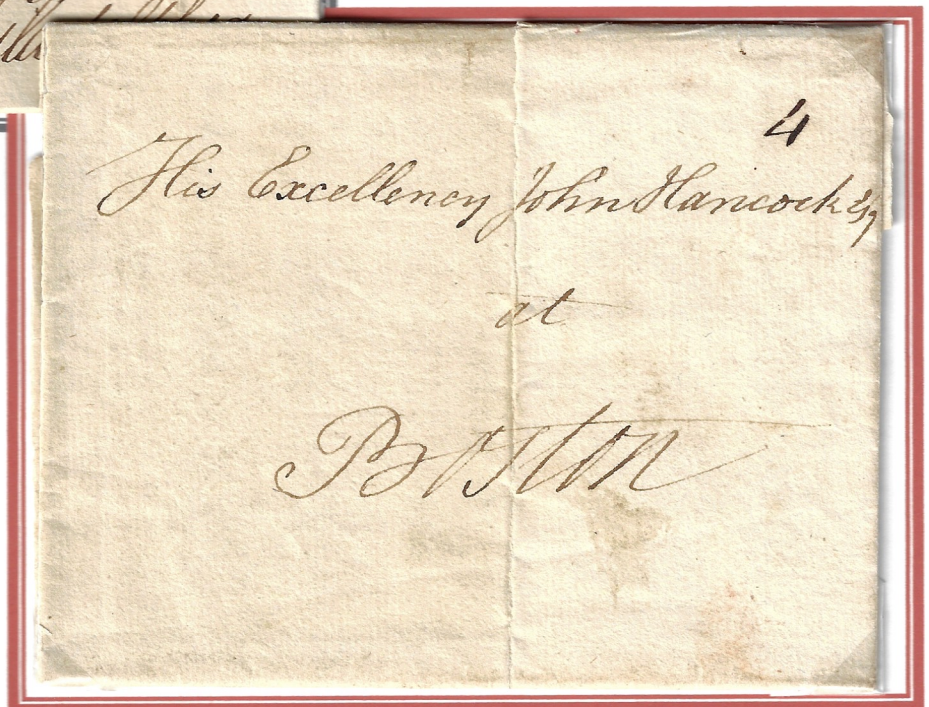 4
His Excellency John Hancock Esq
at
Boston